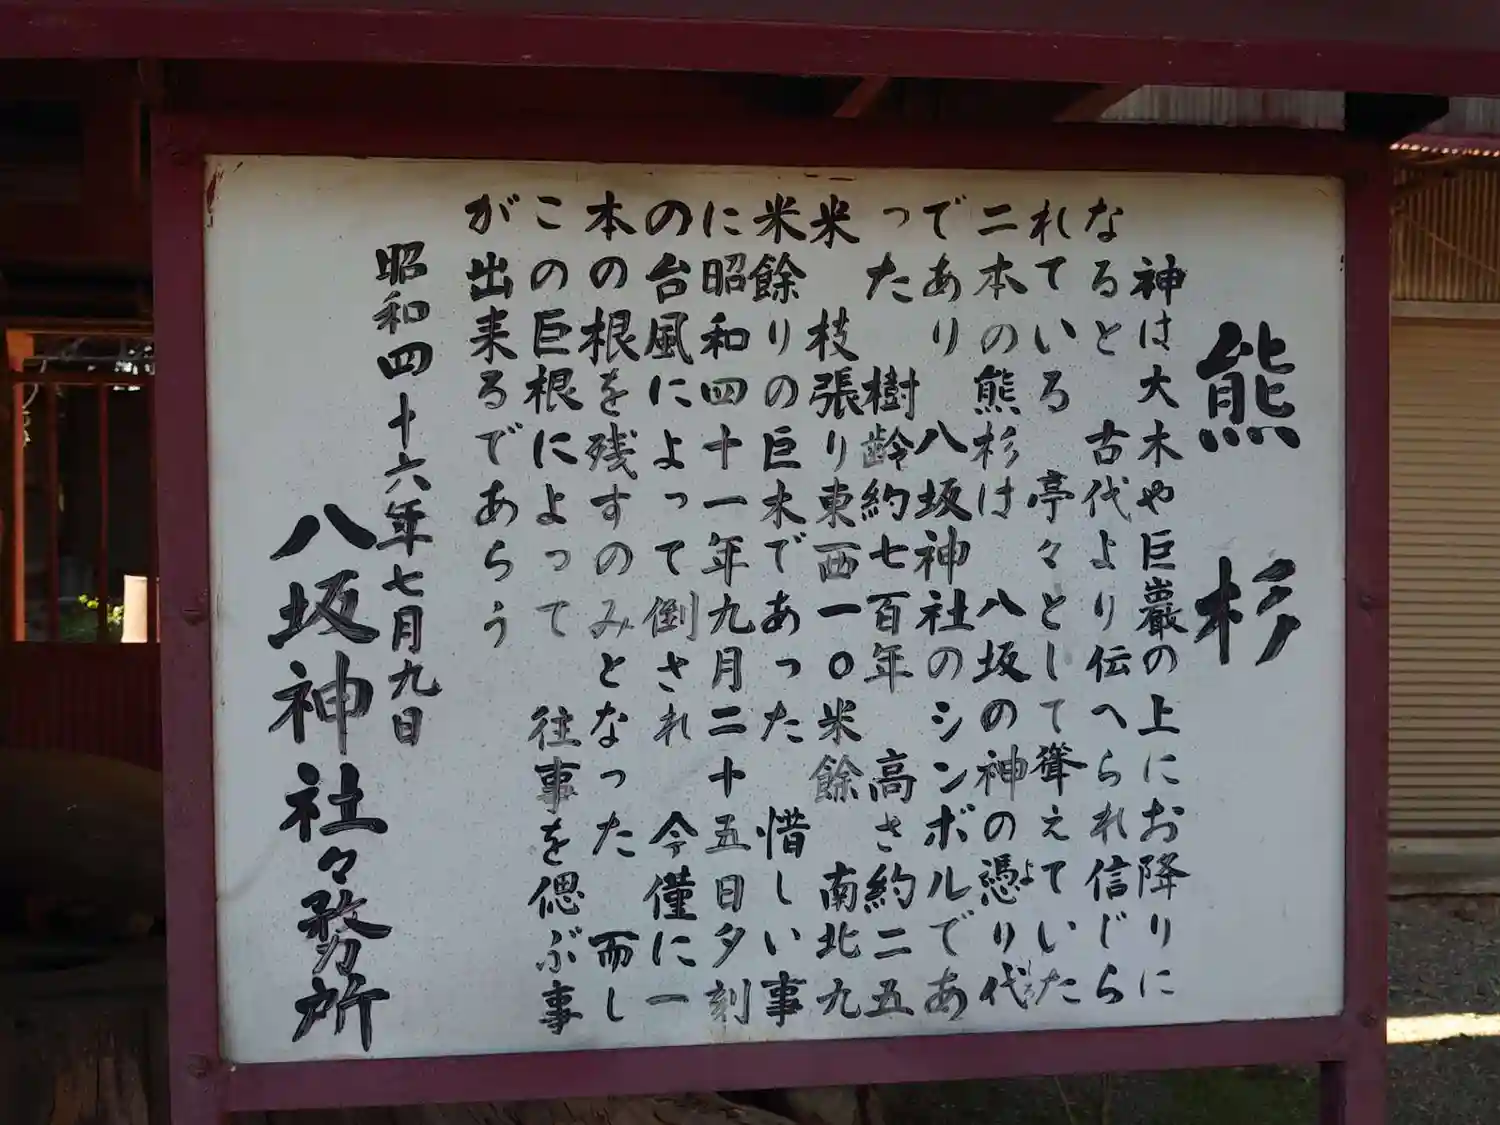 熊杉
神は大木や巨巖の上にお降りに
なると　古代より伝へられ信じら
れている　亭々として聳えていた
二本の熊杉は　八坂の神の憑り代
よ　しろ
であり　八坂神社のシンボルであ
った　樹齢約七百年　高さ約二五
米　枝張り東西一〇米餘　南北九
米餘りの巨木であった　惜しい事
に昭和四十一年九月二十五日夕刻
の台風によって倒され　今僅に一
本の根を残すのみとなった　而し
この巨根によって　往事を偲ぶ事
が出来るであらう
昭和四十六年七月九日
八坂神社々務所